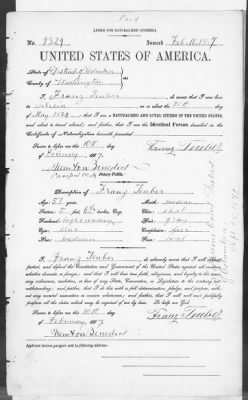 [FORM FOR NATURALIZED CITIZEN.]
No. 9329 Issued Feb. 11, 1887
UNITED STATES OF AMERICA.
State of District of
County of Washington
I Franz Teuber do swear that I was born
in on or about the 20th day
of May, 1829, that I am a NATURALIZED AND LOYAL CITIZEN OF THE UNITED STATES,
and about to travel abroad; and further, that I am the Identical Person described in the
Certificate of Naturalization herewith presented.
Sworn to before me this 10th
day of February 1887. Franz Teuber
Newton Benedict
Notary Public.
Description of Franz Teuber
Age: 57 years
Stature: 5 feet inches, Eng.
Eyes: blue
Nose: medium
Mouth: medium
Chin:
Hair: gray
Complexion: fair
Face: oval
I, Franz Teuber do solemnly swear that I will support,
protect, and defend the Constitution and Government of the United States against all enemies,
whether domestic or foreign; and that I will bear true faith, allegiance, and loyalty to the same,
any ordinance, resolution, or law of any State, Convention, or Legislature to the contrary notwithstanding;
and further, that I do this with a full determination, pledge, and purpose, without
any mental reservation or evasion whatsoever; and further, that I will well and faithfully
perform all the duties which may be required of me by law. So help me God.
Sworn to before me this 10th
day of February 1887. Franz Teuber
Newton Benedict
Applicant desires passport sent to following address: